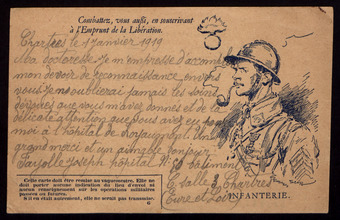 Combattez, vous aussi, en souscrivant
à l'Emprunt de la Libération.
Chartres le 1 Janvier 1919
Ma doctoresse Je m'empresse d'accomplir
mon devoir de reconnaissance envers
vous Je n'oublierai jamais les soins
dévoués que vous m'avez donnes et de
délicate attention que vous avez eu pour
moi à l'hôpital de Un
grand merci et un aimable bonjour
Fayolle Joseph hôpital bâtiment
C salle Chartres
Eure et Loir
INFANTERIE.
Cette carte doit être remise au vaguemestre. Elle ne
doit porter aucune indication du lieu d'envoi et
aucun renseignement sur les opérations militaires
passées ou futures.
S'il en était autrement, elle ne serait pas transmise.